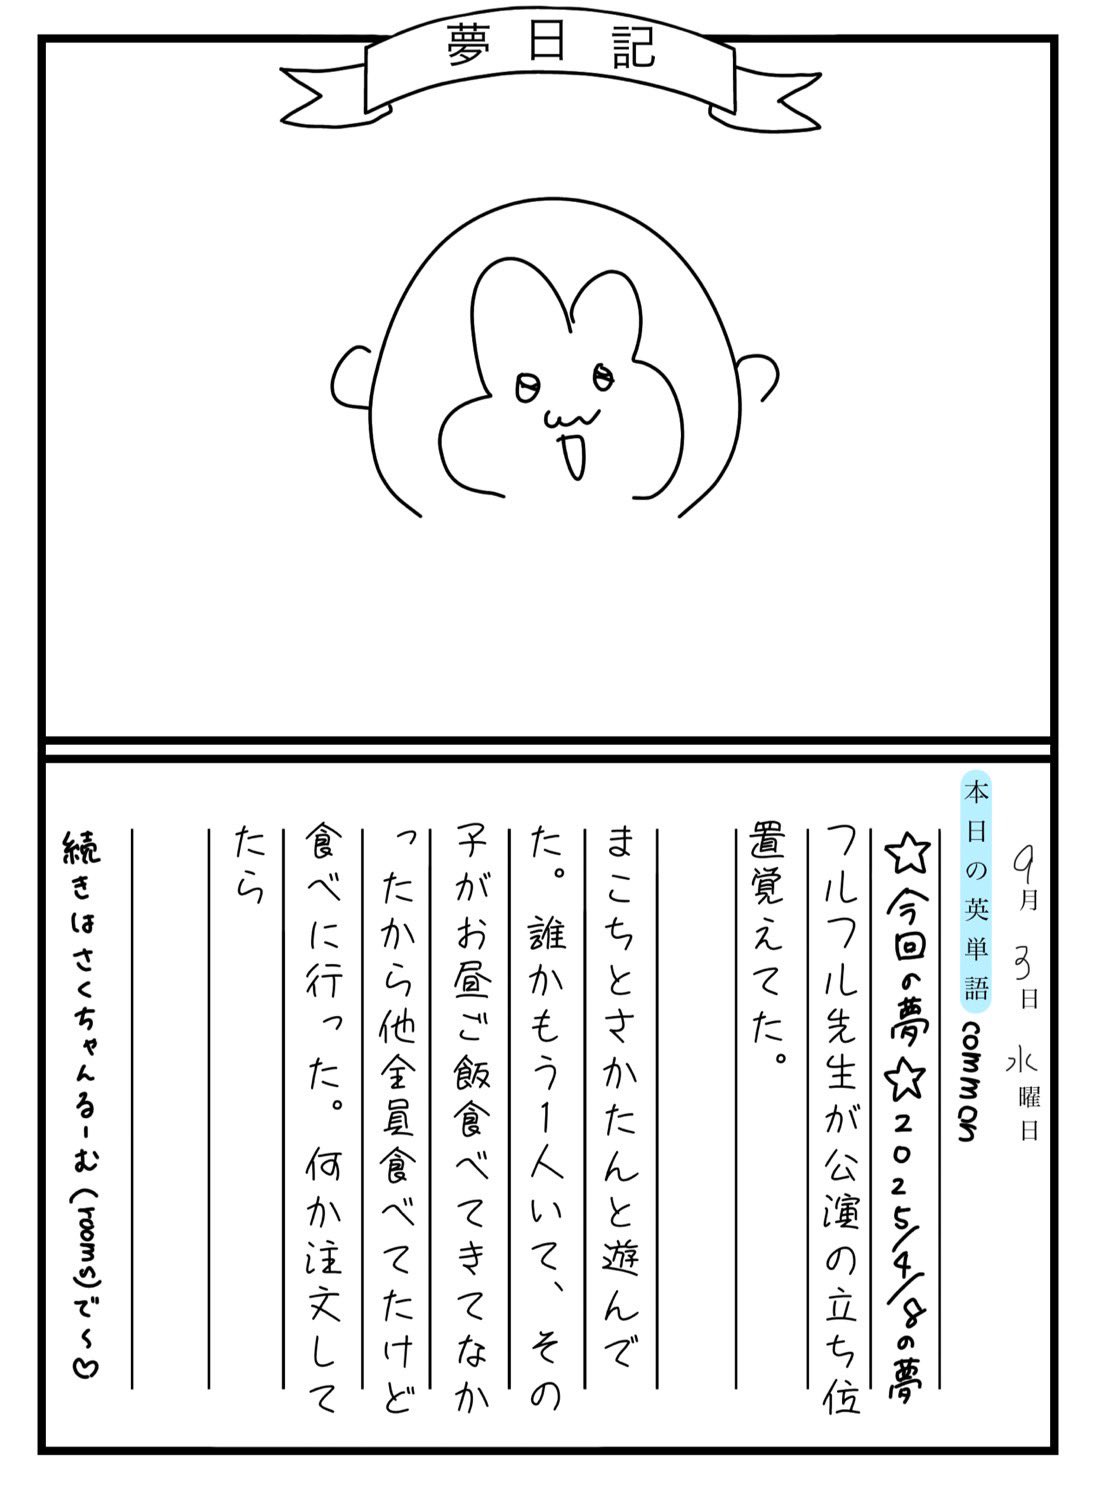 夢日記
9月3日水曜日
本日の英単語 common
☆今回の夢☆2025/4/8の夢
フルフル先生が公演の立ち位
置覚えてた。
まこちとさかたんと遊んで
た。誰かもう1人いて、その
子がお昼ご飯食べてきてなか
ったから他全員食べてたけど
食べに行った。何か注文して
たら
続きはさくちゃんるーむ(rooms)で〜♡